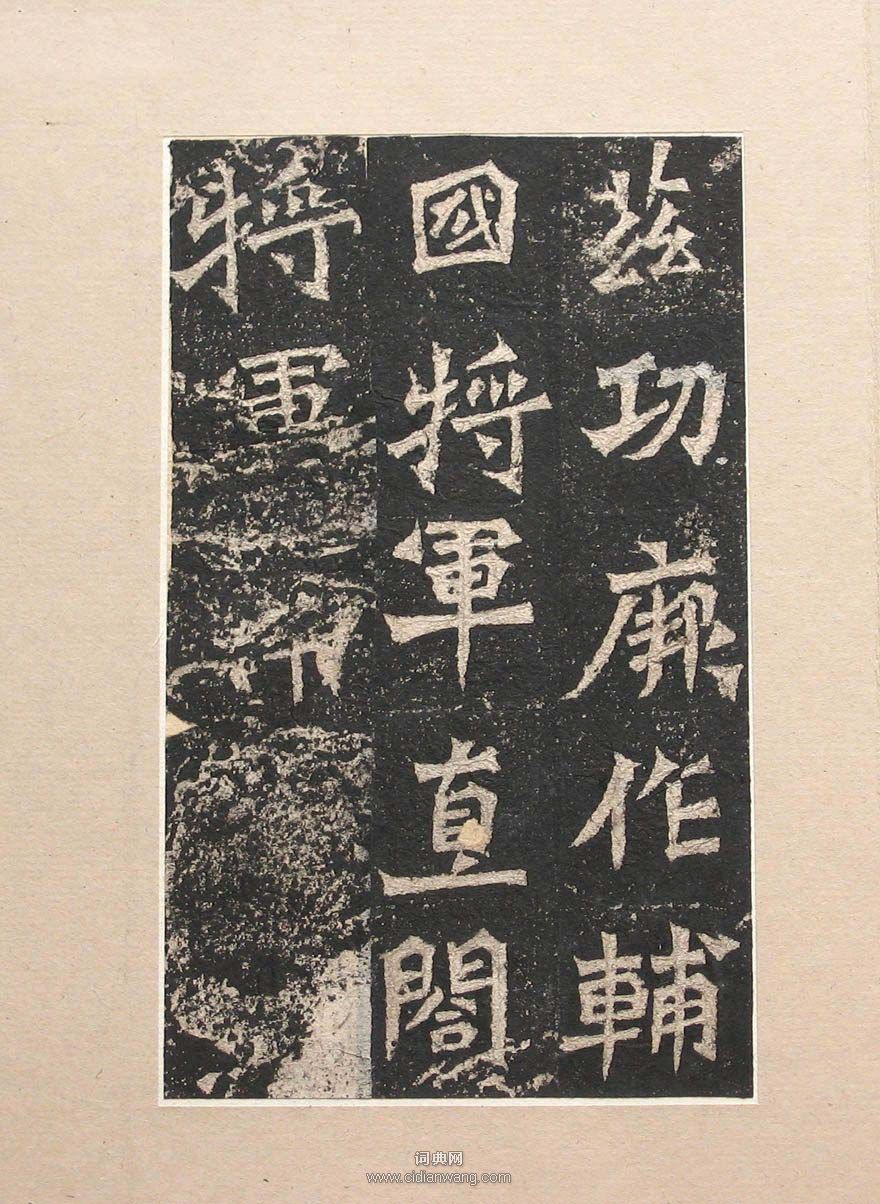 茲功厥作輔
國將軍直閤
將軍
词典网
www.cidianwang.com